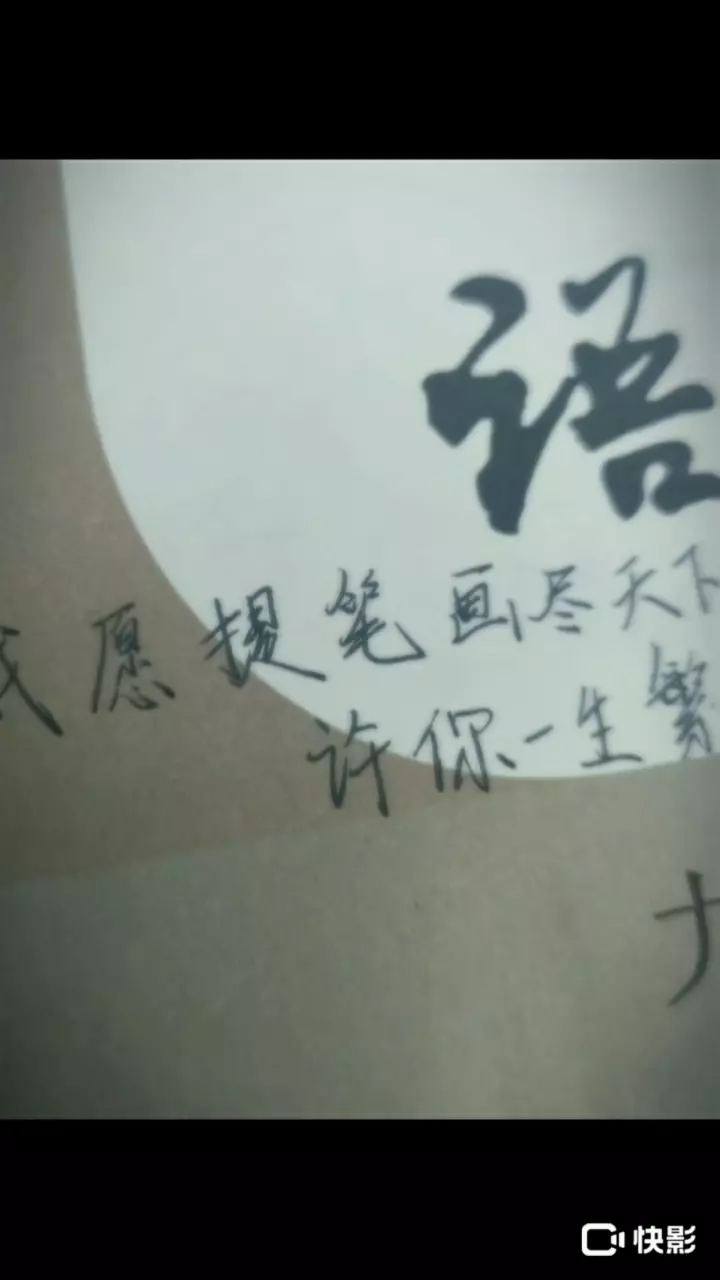 语
我愿提笔画尽天下
许你一生繁
快影